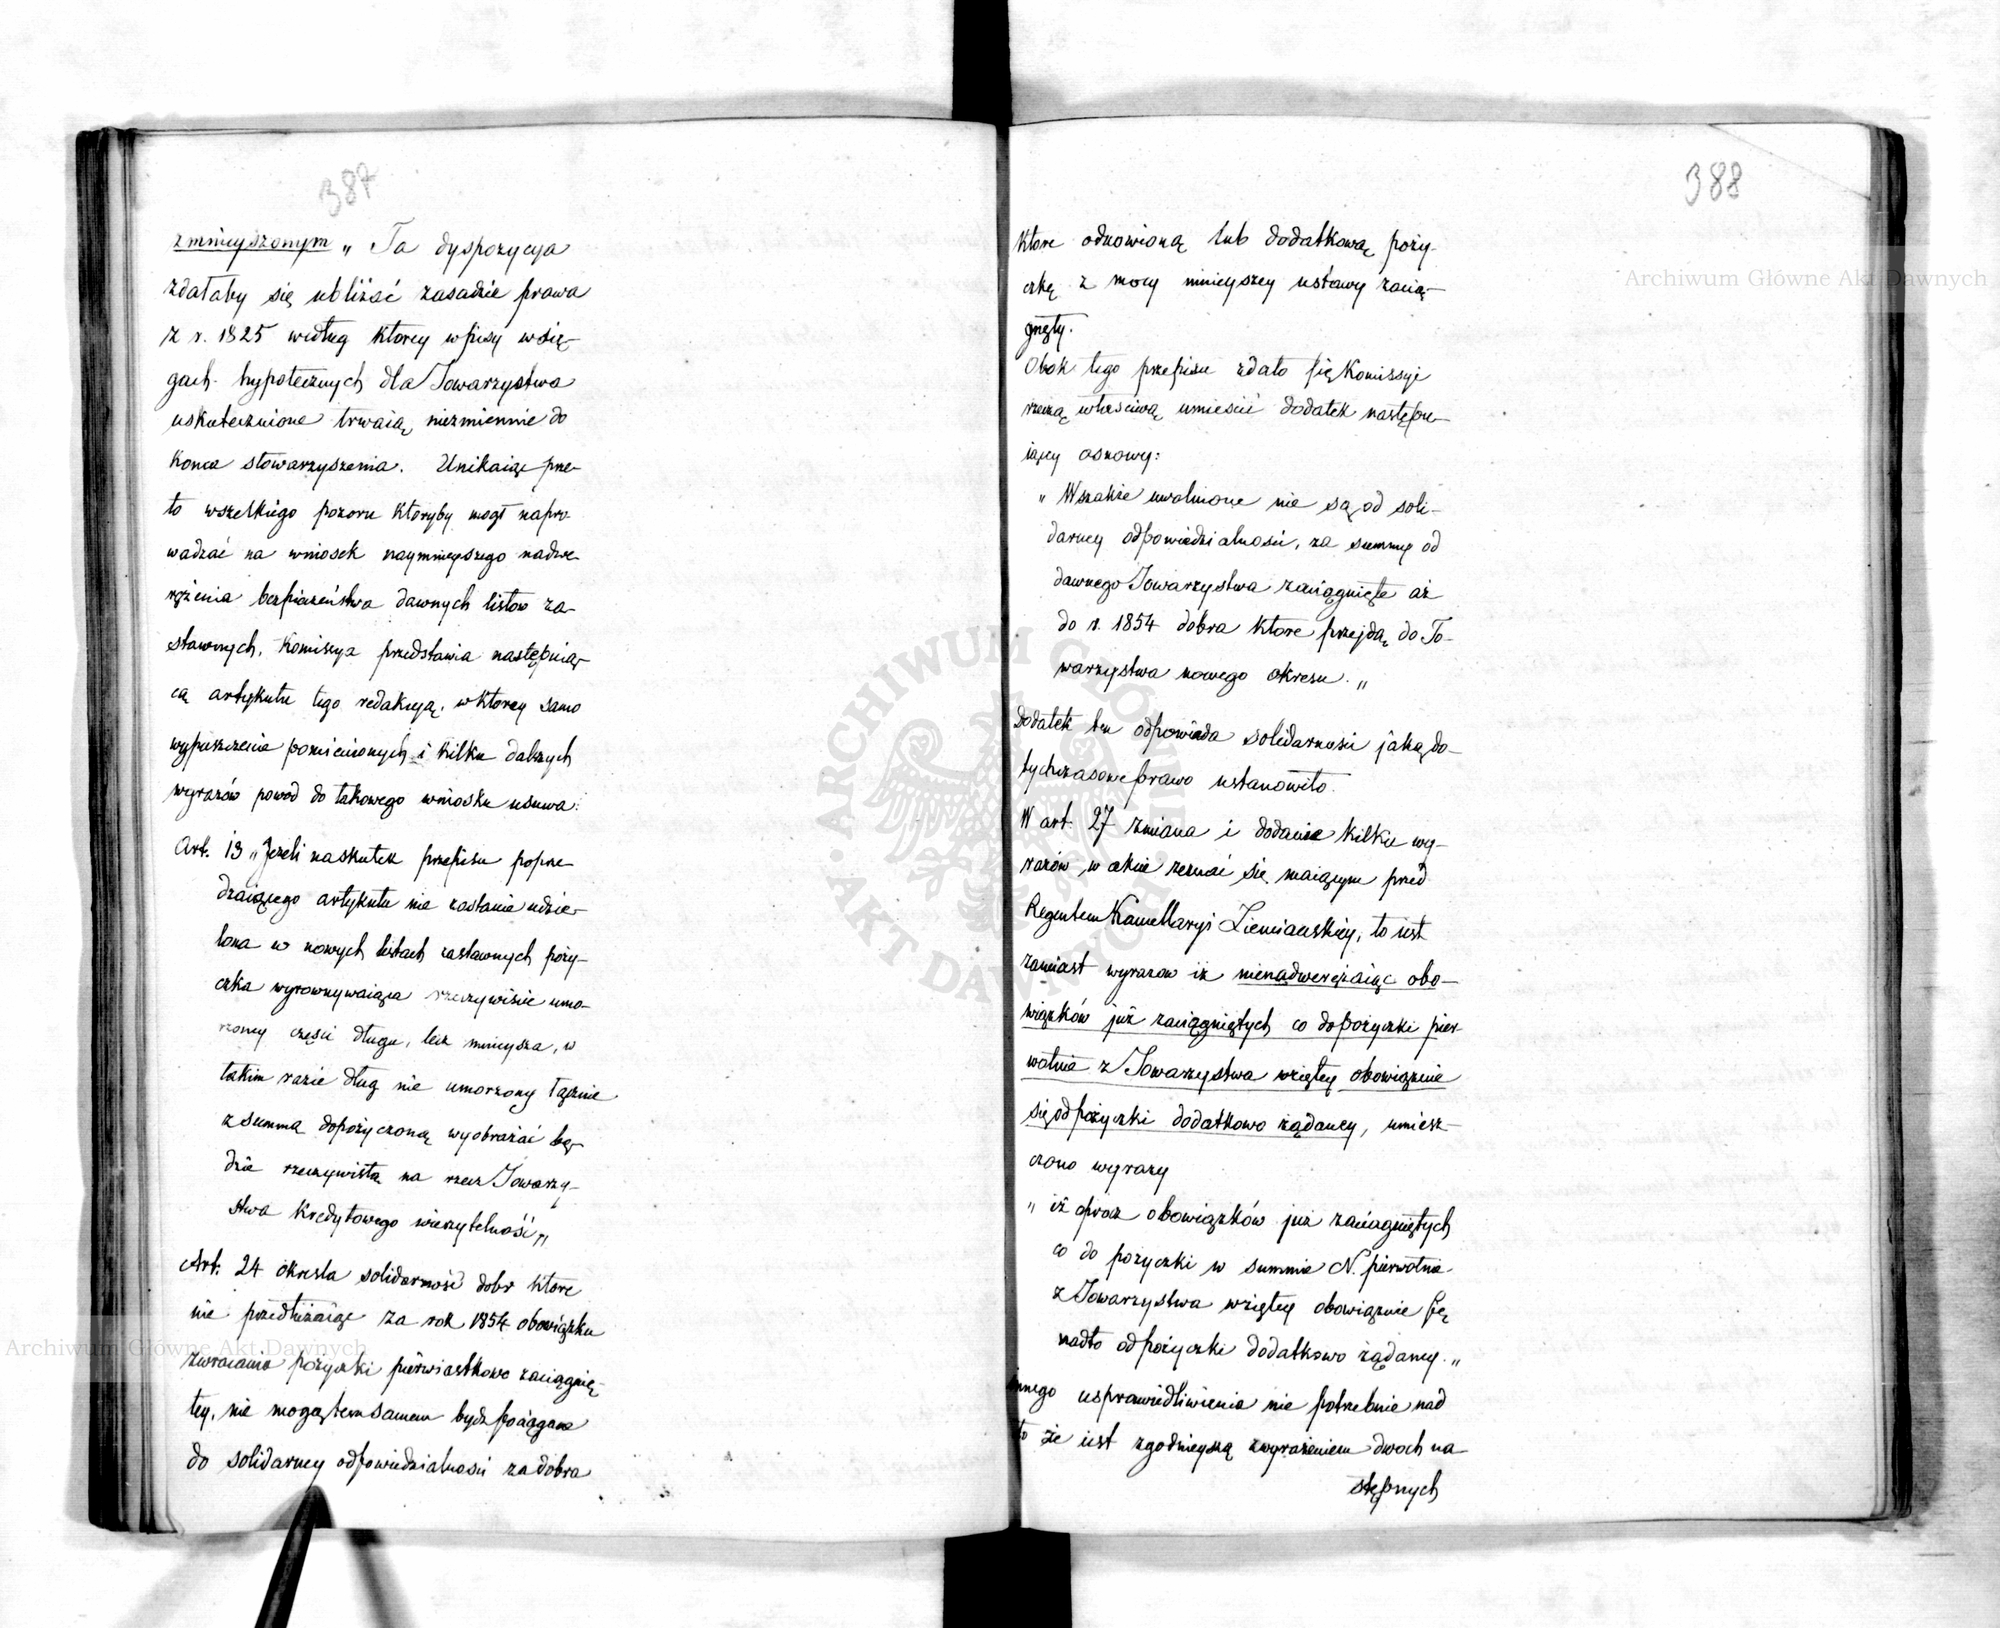 387
zmnieyszonym „ Ta dyspozycya
zdałaby się ubliżać zasadzie prawa
z r. 1825 według ktorey wpisy wsię-
gach hypotecznych dla Towarzystwa
uskutecznione trwaią niezmiennie do
konca stowarzyszenia. Unikaiąc prze-
to wszelkiego pozoru ktoryby mogł napro-
wadzać na wniosek naymnieyszego nadwe-
rężenia bezpieczeństwa dawnych listow za-
stawnych, Komissya przedstawia następuią-
cą artykułu tego redakcyą, w ktorey samo
wypuszczenie pomienionych i kilku dalszych
wyrazów powod do takowego wniosku usuwa:
Art. 13 „Jeżeli naskutek przepisu poprze-
dzaiącego artykułu nie zostanie udzie-
lona w nowych listach zastawnych poży-
czka wyrownywaiąca rzeczywiście umo-
rzoney części długu, lecz mnieysza, w
takim razie dług nie umorzony łącznie
z summą dopożyczoną wyobrażać bę-
dzie rzeczywistą na rzecz Towarzy-
stwa Kredytowego wierzytelność„
Art. 24 okresla solidarność dobr ktore
nie przedłużaiąc za rok 1854 obowiązku
zwracania pożyczki pierwiastkowo zaciągnię-
tey, nie mogą tem samem bydź pociągane
do solidarney odpowiedzialności za dobra
388
ktore odnowioną lub dodatkową poży-
czkę z mocy ninieyszey ustawy zacią-
gnęły.
Obok tego przepisu zdało się Komissyi
rzeczą właściwą umieścić dodatek następu-
iącey osnowy:
„ Wszakże uwolnione nie są od soli-
darney odpowiedzialności, za summy od
dawnego Towarzystwa zaciągnięte aż
do r. 1854 dobra ktore przejdą do To-
warzystwa nowego okresu. „
Dodatek ten odpowiada solidarności jaką do-
tychczasowe prawo ustanowiło.
W art. 27 zmiana i dodanie kilku wy-
razów, w akcie zeznać się maiącym przed
Regentem Kancellaryi Ziemiańskiey, to iest
zamiast wyrazow iż nienadwerężaiąc obo-
wiązków już zaciągniętych co do pożyczki pier-
wotnie z Towarzystwa wziętey obowiązuie
się od pożyczki dodatkowo żądaney, umiesz-
czono wyrazy
„ iż oprocz obowiązków już zaciągniętych
co do pożyczki w summie N. pierwotnie
z Towarzystwa wziętey obowiązuie się
nadto od pożyczki dodatkowo żądaney. „
innego usprawiedliwienia nie potrzebuie nad
to że iest zgodnieyszą z wyrażeniem dwoch na-
stępnych
Archiwum Główne Akt Dawnych
Archiwum Główne Akt Dawnych
ARCHIWUM GŁÓWNE • AKT DAWNYCH •